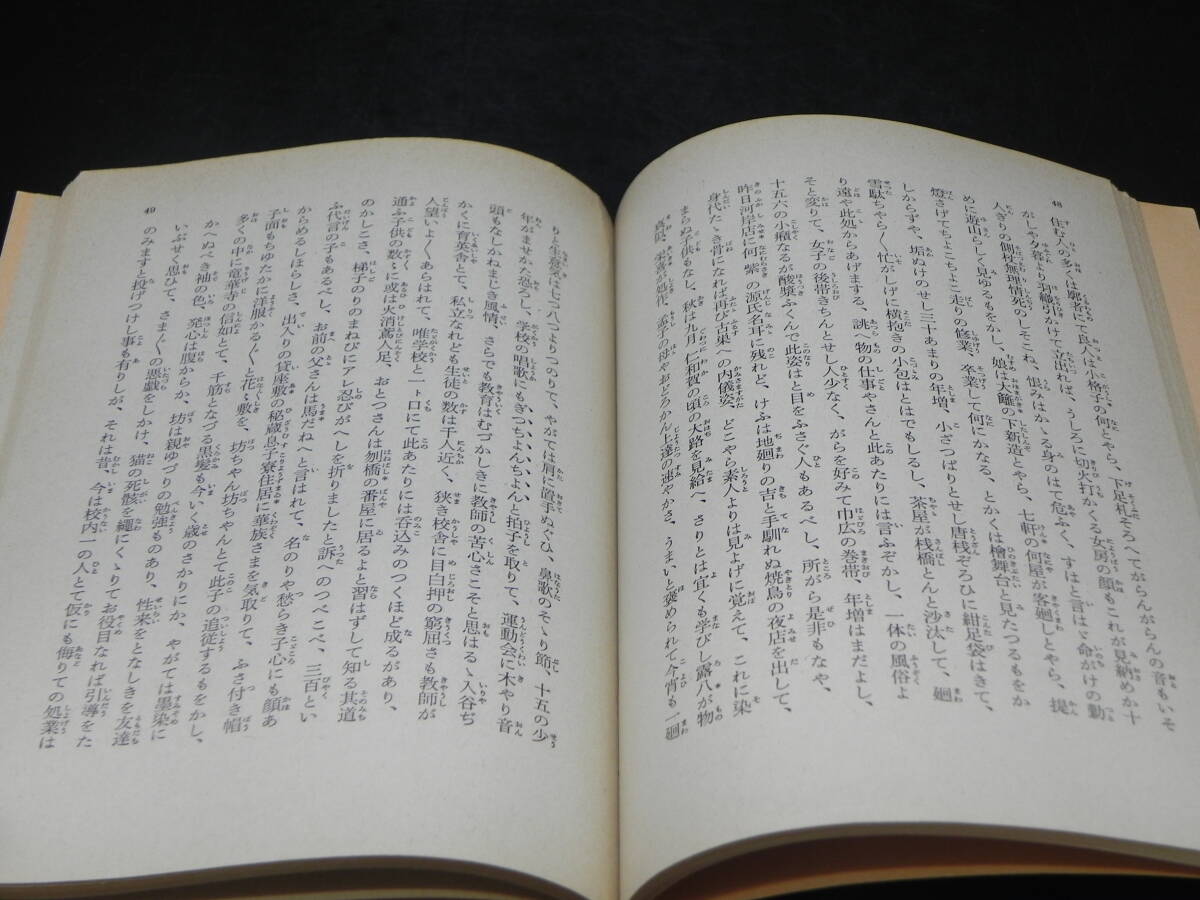 48
住む人の多くは廓者にて良人は小格子の何とやら、下足札そろへてがらんがらんの音もいそ
がしや夕暮より羽織引かけて立出れば、うしろに切火打かくる女房の顔もこれが見納めか十
人ぎりの側杖無理情死のしそこね、恨みはかゝる身のはて危ふく、すはと言はゞ命がけの勤
めに遊山らしく見ゆるもをかし、娘は大籬の下新造とやら、七軒の何屋が客廻しとやら、提
燈さげてちよこちよこ走りの修業、卒業して何にかなる、とかくは檜舞台と見たつるもをか
しからずや、垢ぬけのせし三十あまりの年増、小ざつぱりとせし唐桟ぞろひに紺足袋はきて、
雪駄ちやら〳〵忙がしげに横抱きの小包はとはでもしるし、茶屋が桟橋とんと沙汰して、廻
り遠や此処からあげまする、誂へ物の仕事やさんと此あたりには言ふぞかし、一体の風俗よ
そと変りて、女子の後帯きちんとせし人少なく、がらを好みて巾広の巻帯、年増はまだよし、
十五六の小癪なるが酸漿ふくんで此姿はと目をふさぐ人もあるべし、所がら是非もなや、
昨日河岸店に何紫の源氏名耳に残れど、けふは地廻りの吉と手馴れぬ焼鳥の夜店を出して、
身代たゝき骨になれば再び古巣への内儀姿、どこやら素人よりは見よげに覚えて、これに染
まらぬ子供もなし、秋は九月仁和賀の頃の大路を見給へ、さりとは宜くも学びし露八が物
真似、栄喜が処作、孟子の母やおどろかん上達の速やかさ、うまいと褒められて今宵も一廻
りと生意気は七つ八つよりつのりて、やがては肩に置手ぬぐひ、鼻歌のそゝり節、十五の少
年がませかた恐ろし、学校の唱歌にもぎつちよんちよんと拍子を取りて、運動会に木やり音
頭もなしかねまじき風情、さらでも教育はむづかしきに教師の苦心さこそと思はるゝ入谷ぢ
かくに育英舎とて、私立なれども生徒の数は千人近く、狭き校舎に目白押の窮屈さも教師が
人望いよ〳〵あらはれて、唯学校と一ト口にて此あたりには呑込みのつくほど成るがあり、
通ふ子供の数々に或は火消鳶人足、おとつさんは刎橋の番屋に居るよと習はずして知る其道
のかしこさ、梯子のりのまねびにアレ忍びがへしを折りましたと訴へのつべこべ、三百とい
ふ代言の子もあるべし、お前の父さんは馬だねへと言はれて、名のりや愁らき子心にも顔あ
からめるしほらしさ、出入りの貸座敷の秘蔵息子寮住居に華族さまを気取りて、ふさ付き帽
子面もちゆたかに洋服かる〴〵と花々敷を、坊ちやん坊ちやんとて此子の追従するもをかし、
多くの中に竜華寺の信如とて、千筋となづる黒髪も今いく歳のさかりにか、やがては墨染に
かへぬべき袖の色、発心は腹からか、坊は親ゆづりの勉強ものあり、性来をとなしきを友達
いぶせく思ひて、さま〴〵の悪戯をしかけ、猫の死骸を縄にくゝりてお役目なれば引導をた
のみますと投げつけし事も有りしが、それは昔、今は校内一の人とて仮にも侮りての処業は
49